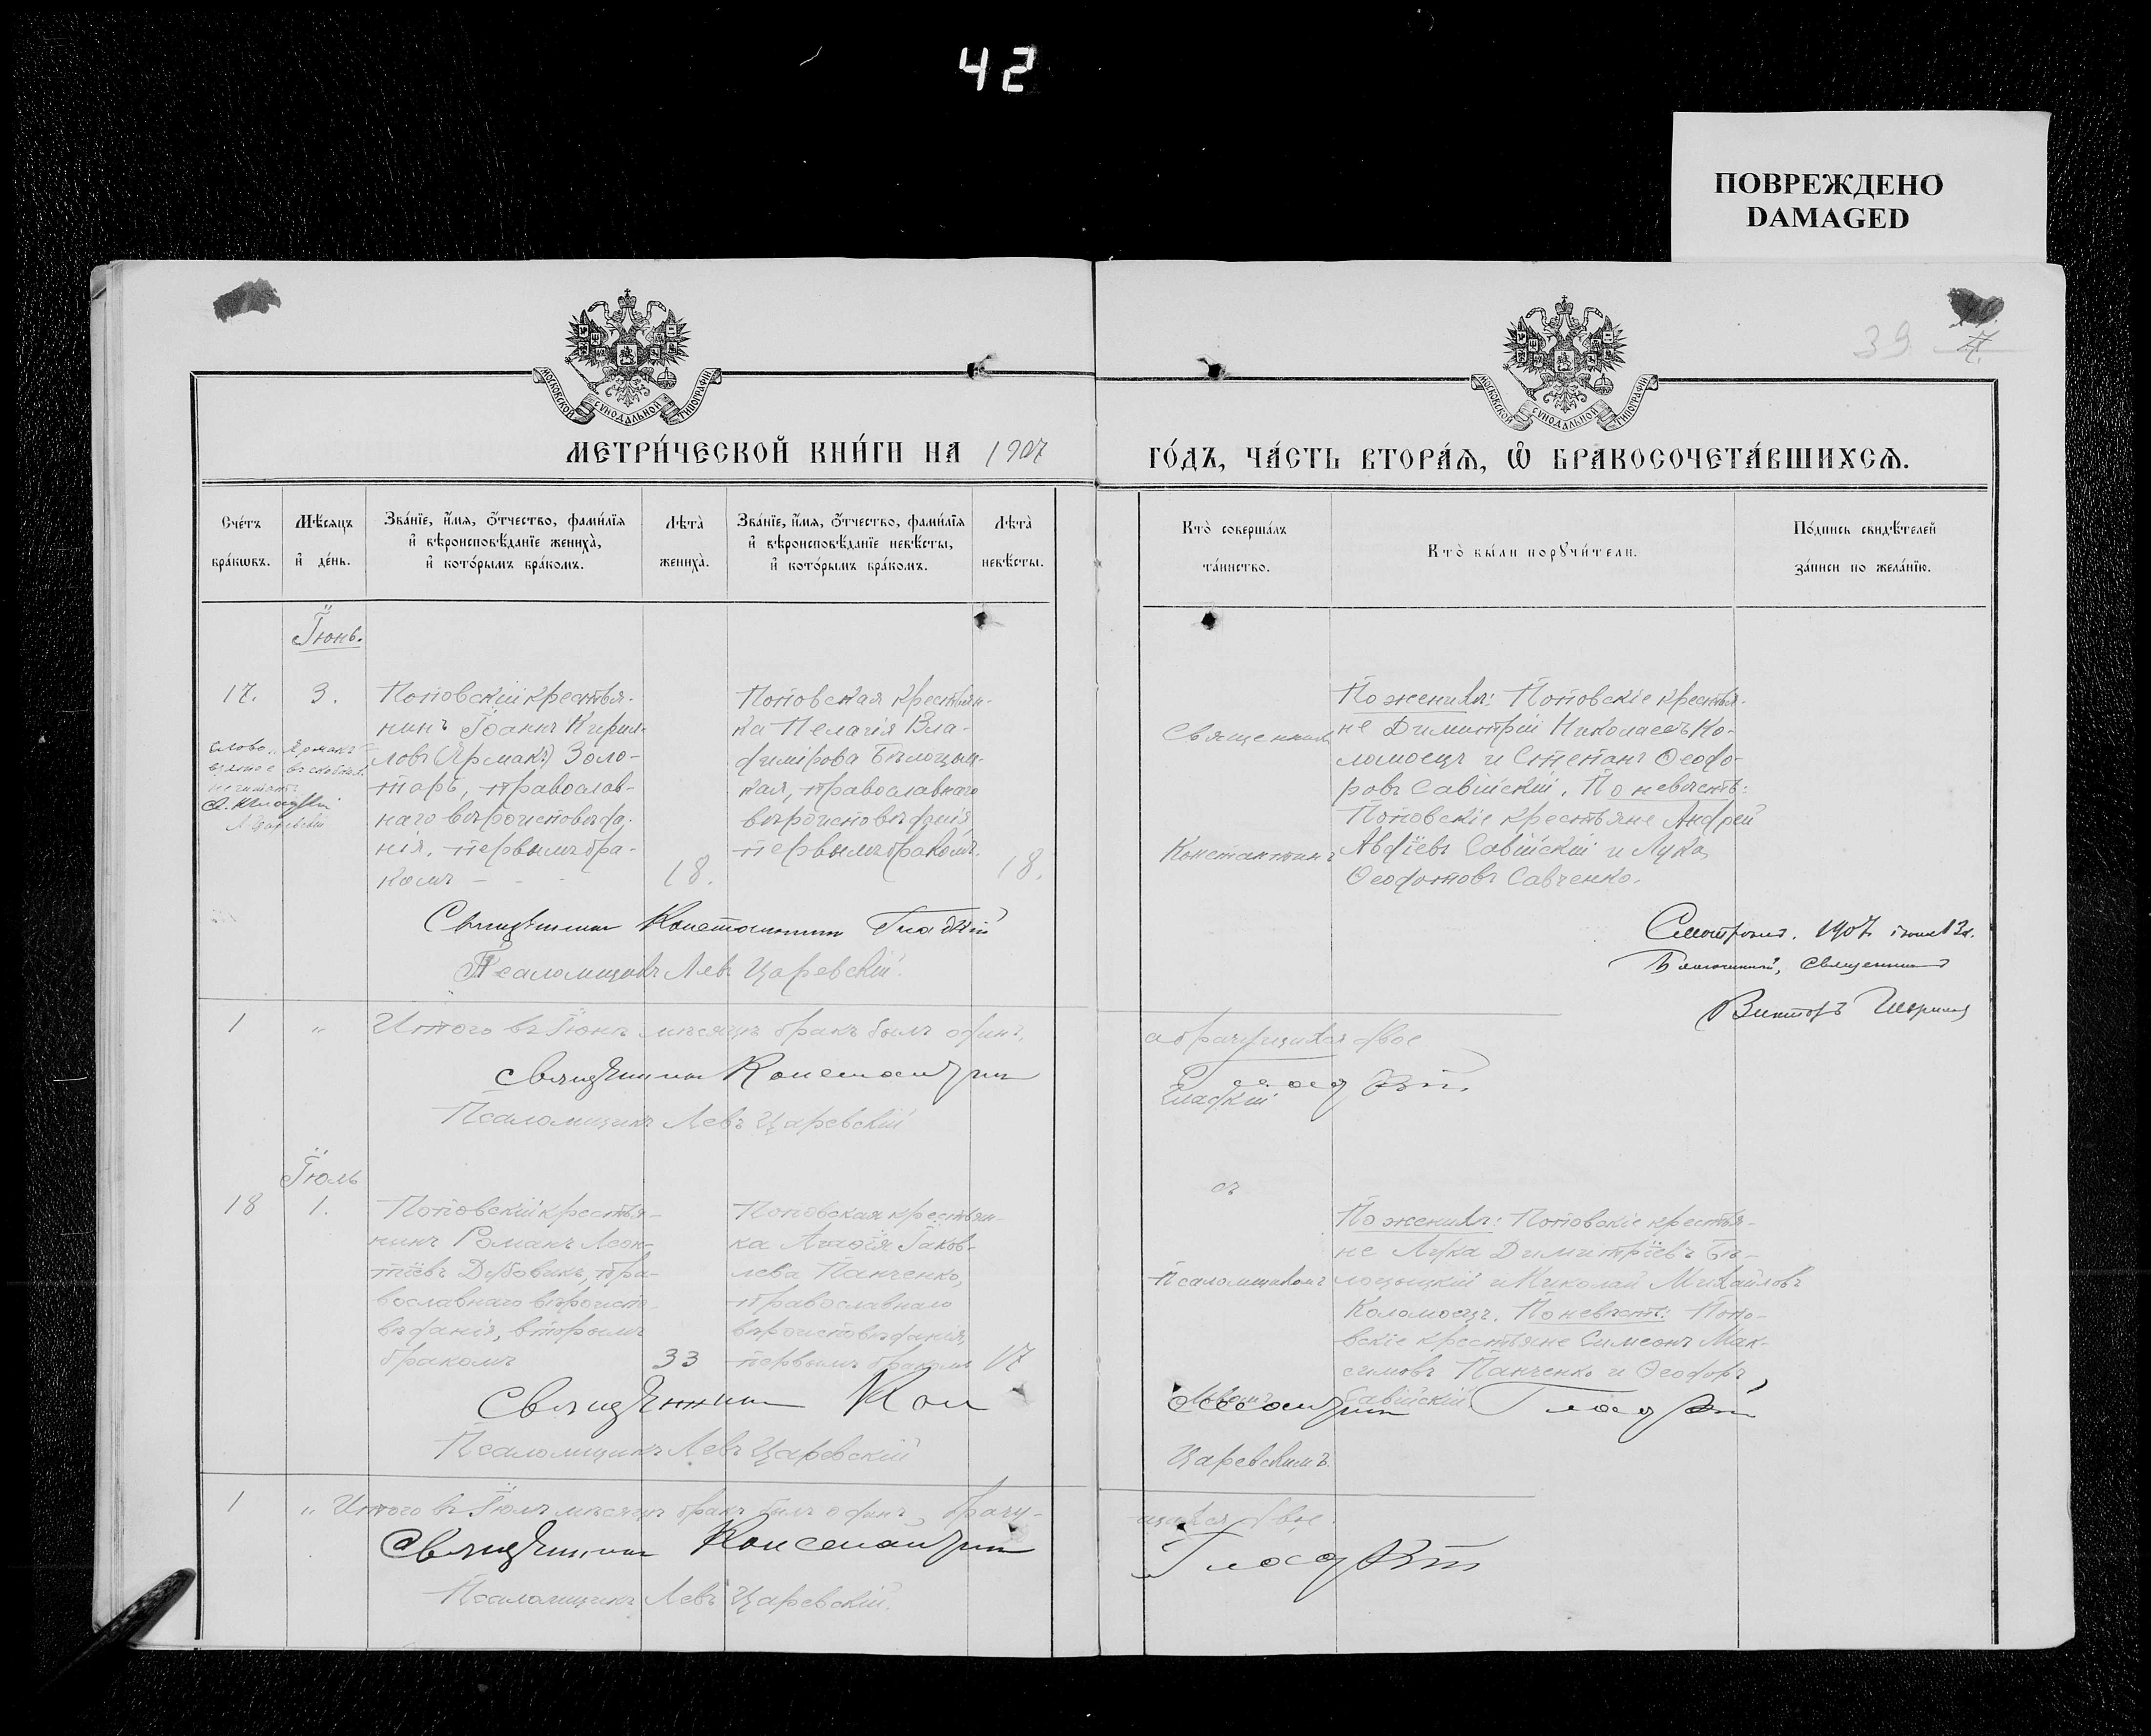 42
ПОВРЕЖДЕНО
DAMAGED
39
МОСКОВСКОЙ СѴНОДАЛЬНОЙ ТИПОГРАФІИ
МОСКОВСКОЙ СѴНОДАЛЬНОЙ ТИПОГРАФІИ
МЕТРИ́ЧЕСКОЙ КНИ́ГИ НА 1907
ГО́ДЪ, ЧА́СТЬ ВТОРА́Ѧ, Ѽ БРАКОСОЧЕТА́ВШИХСѦ.
Сче́тъ
бра́кѡвъ.
Мѣ́сяцъ
и҆ де́нь.
Зва́нїе, и҆́мѧ, ѻ҆́тчество, фами́лїѧ
и҆ вѣроисповѣ́данїе жениха̀,
и҆ кото́рымъ бра́комъ.
Лѣта̀
жениха̀.
Зва́нїе, и҆́мѧ, ѻ҆́тчество, фами́лїѧ
и҆ вѣроисповѣ́данїе невѣ́сты,
и҆ кото́рымъ бра́комъ.
Лѣта̀
невѣ́сты.
Кто̀ соверша́лъ
та́инство.
Кто̀ бы́ли порꙋчи́тели.
По́дпись свидѣ́телей
за́писи по жела́нїю.
Іюнь.
17.
3.
Поповскій крестья-
нинъ Іоаннъ Кирил-
ловъ (Ярмакъ) Золо-
тарь, православ-
наго вѣроисповѣда-
нія, первымъ бра-
комъ
18.
Поповская крестьян-
ка Пелагія Вла-
димірова Бѣлоцыц-
кая, православнаго
вѣроисповѣданія
первымъ бракомъ.
18.
слово "Ярмакъ"
взятое въ скобки
не читать
Л. Царевскій
Священникъ
Константинъ
По женихѣ: Поповскіе крестья-
не Димитрій Николаевъ Ко-
ломоецъ и Стефанъ Ѳеодо-
ровъ Савійскій. По невѣстѣ:
Поповскіе крестьяне Андрей
Авдіевъ Савійскій и Лука
Ѳеодотовъ Савченко.
Священникъ Константинъ Гладкій
Псаломщикъ Левъ Царевскій.
Смотрѣлъ. 1907 іюня 13 д.
Благочинный, Священникъ
Викторъ
1 " Итого въ Іюнѣ мѣсяцѣ бракъ былъ одинъ,
а брачущихся двое
Священникъ Константинъ
Гладкій
Гладкій
Псаломщикъ Левъ Царевскій
Іюль
18
1.
Поповскій крестья-
нинъ Романъ Леон-
тіевъ Дубовикъ, пра-
вославнаго вѣроиспо-
вѣданія, вторымъ
бракомъ
33
Поповская крестьян-
ка Агаѳія Іаков-
лева Панченко,
православнаго
вѣроисповѣданія,
первымъ бракомъ
17
съ
Псаломщикомъ
Львомъ
Царевскимъ.
По женихѣ: Поповскіе крестья-
не Лука Димитріевъ Бѣ-
лоцыцкій и Николай Михайловъ
Коломоецъ. По невѣстѣ: Попо-
вскіе крестьяне Симеонъ Мак-
симовъ Панченко и Ѳеодоръ
Савійскій
Священникъ Константинъ Гладкій
Псаломщикъ Левъ Царевскій
1 " Итого въ Іюлѣ мѣсяцѣ бракъ былъ одинъ, брачу-
щихся двое.
Священникъ Константинъ
Гладкій
Псаломщикъ Левъ Царевскій.